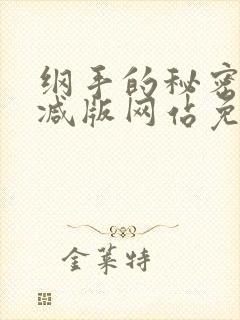 纲手的秘密
减版网佔免
金莱特